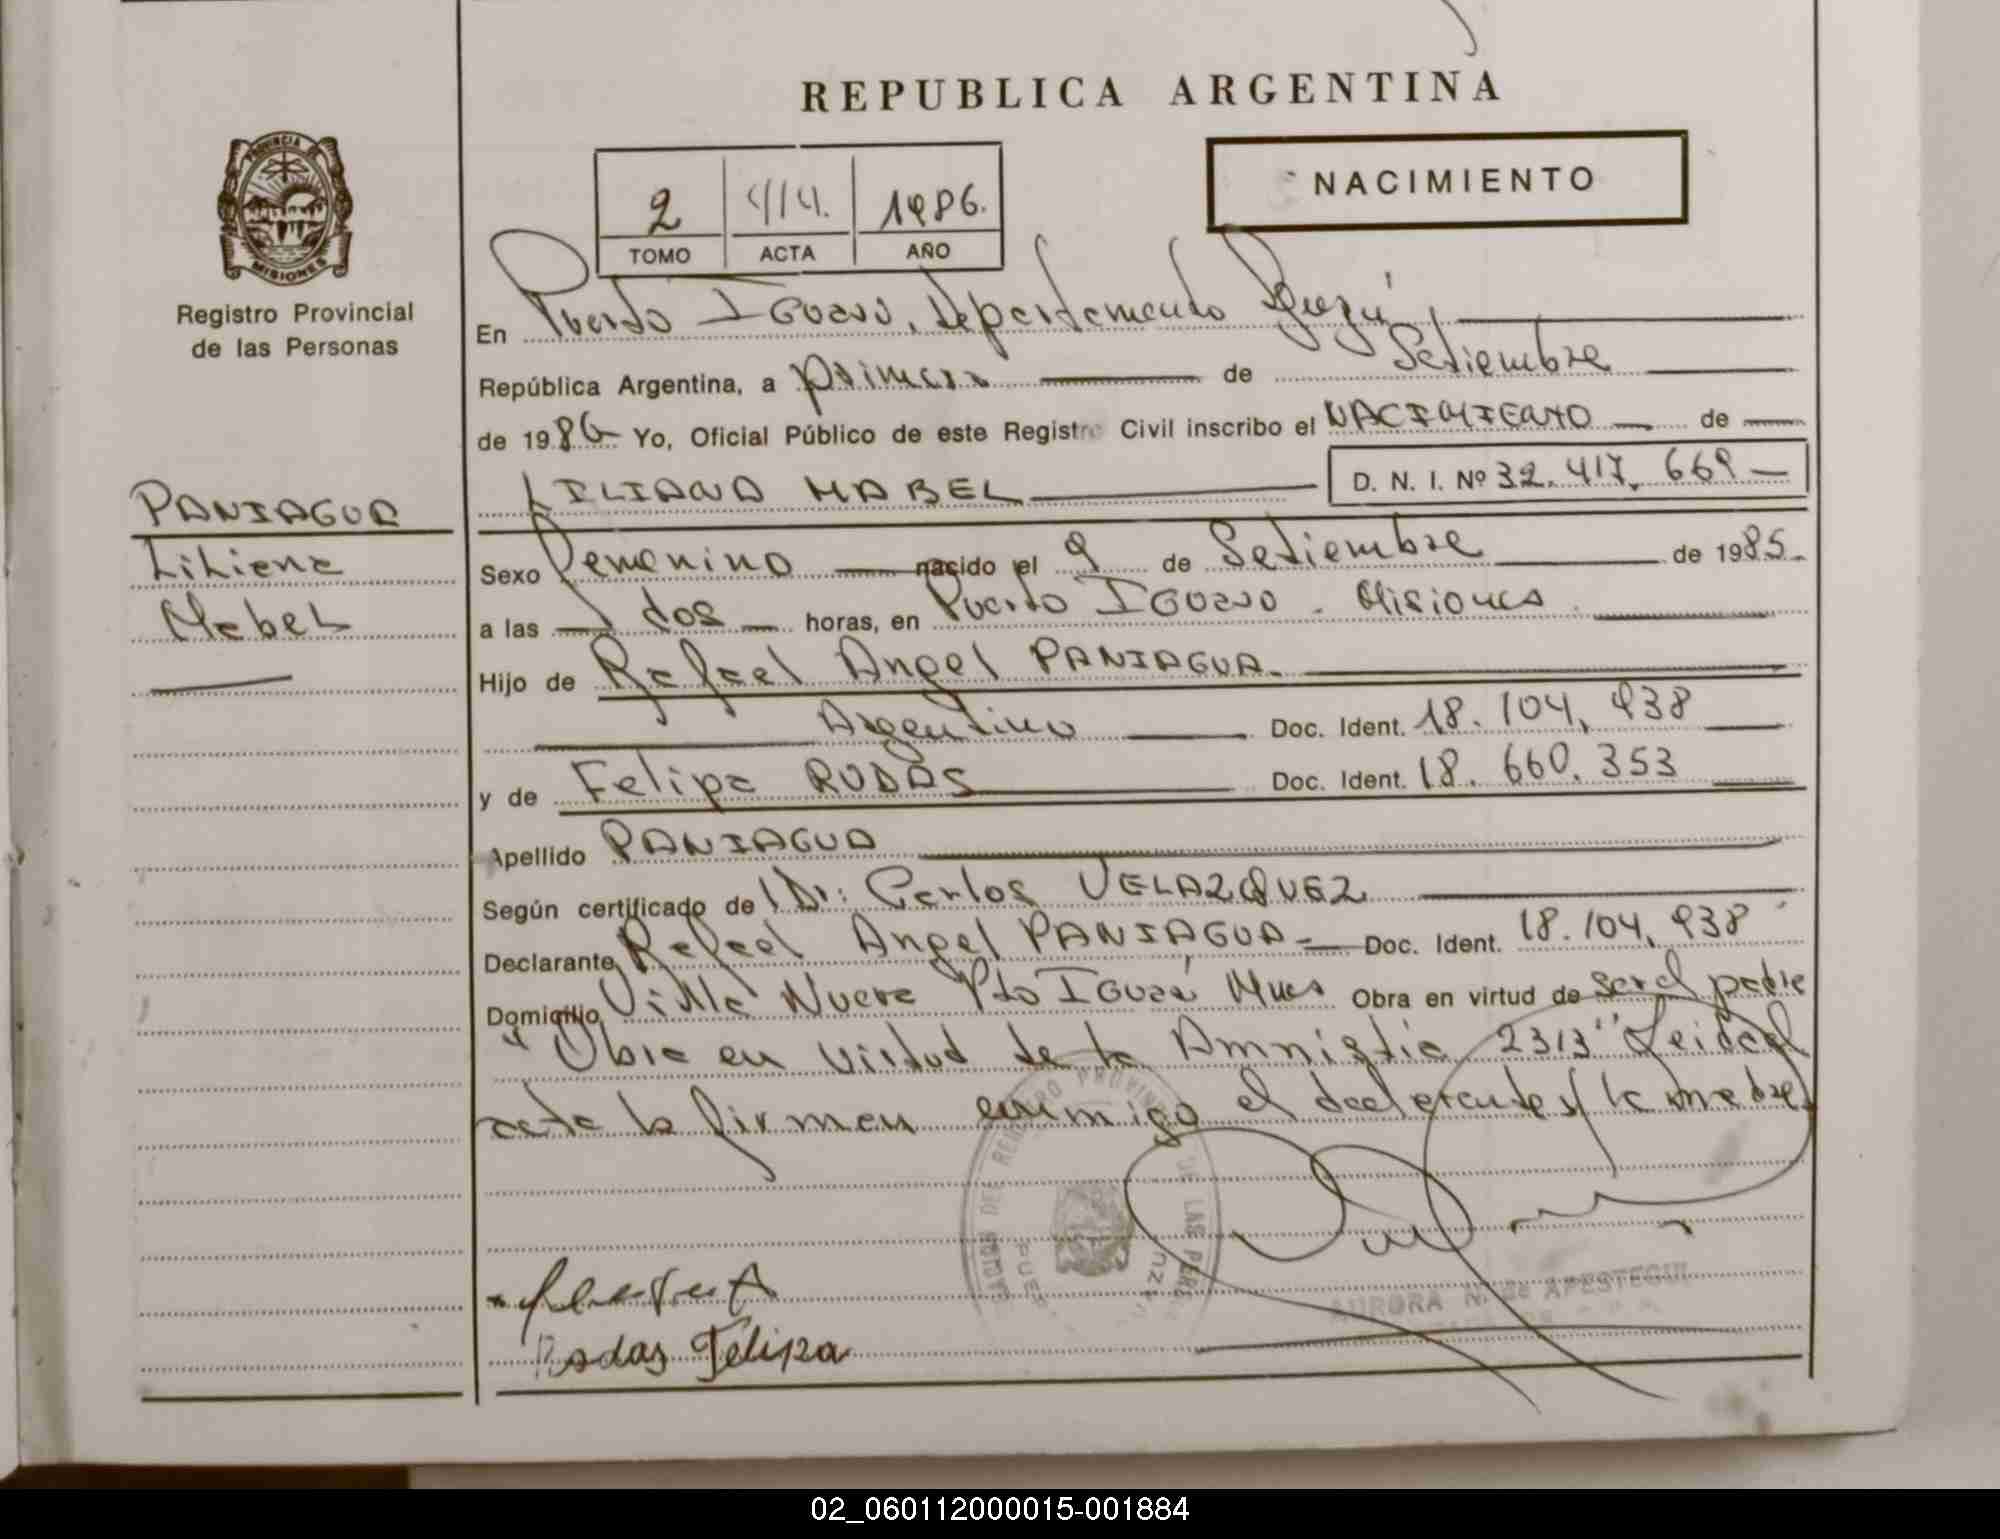 REPUBLICA ARGENTINA
PROVINCIA DE
MISIONES
Registro Provincial
de las Personas
2 414. 1986.
TOMO ACTA AÑO
NACIMIENTO
En Puerto IGUAZU, departamento Iguazú
República Argentina, a primero de Setiembre
de 1986 Yo, Oficial Público de este Registro Civil inscribo el NACIMIENTO de
LILIANA MABEL D. N. I. Nº 32.417.669
PANIAGUA
Liliana
Mabel
Sexo Femenino nacido el 9 de Setiembre de 1985.
a las dos horas, en Puerto IGUAZU. Misiones
Hijo de Rafael Angel PANIAGUA.
Argentino Doc. Ident. 18.104.938
y de Felipa RODAS Doc. Ident. 18.660.353
Apellido PANIAGUA
Según certificado de Dr: Carlos VELAZQUEZ
Declarante Rafael Angel PANIAGUA Doc. Ident. 18.104.938
Domicilio Villa Nueva Pto IGUAZÚ Mnes Obra en virtud de ser el padre
"Obra en virtud de la Amnistia 2313" Leida el
acta la firman conmigo el declarante y la madre
REGISTRO PROVINCIAL DE LAS PERSONAS
AURORA N. de APESTEGUI
Rodas Felipa
02_060112000015-001884